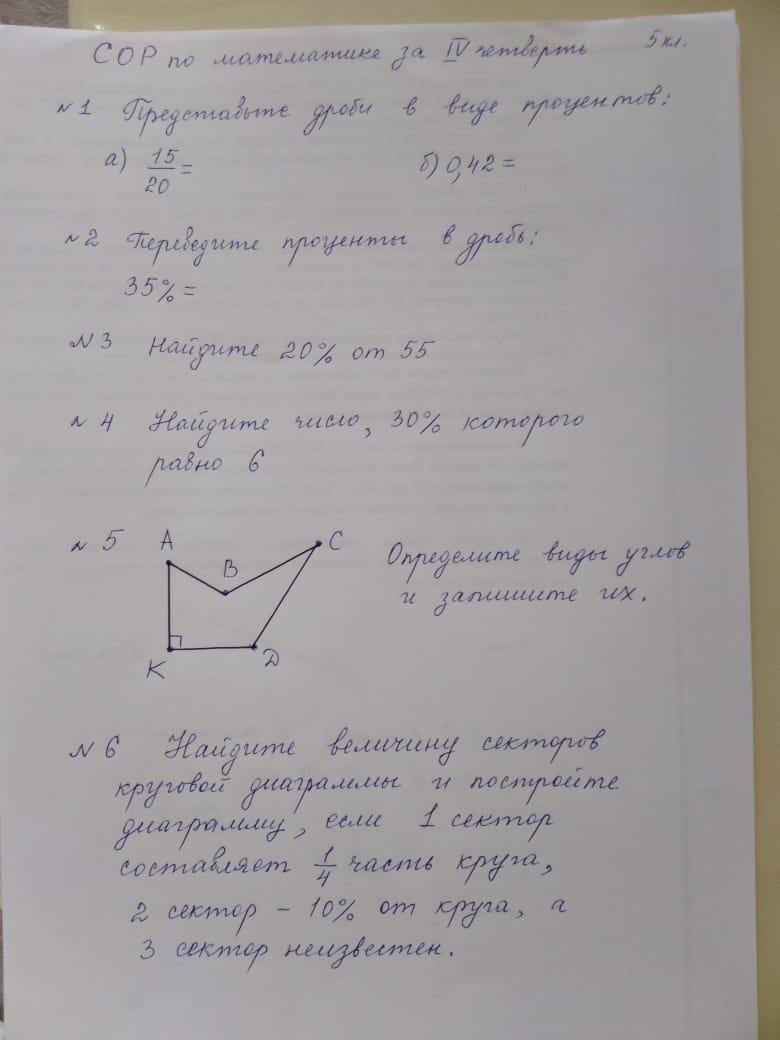 СОР по математике за IV четверть 5 кл.
№1 Представьте дроби в виде процентов:
а) 15/20 = б) 0,42 =
№2 Переведите проценты в дробь:
35% =
№3 Найдите 20% от 55
№4 Найдите число, 30% которого
равно 6
№5 A B C K D
Определите виды углов
и запишите их.
№6 Найдите величину секторов
круговой диаграммы и постройте
диаграмму, если 1 сектор
составляет 1/4 часть круга,
2 сектор – 10% от круга, а
3 сектор неизвестен.